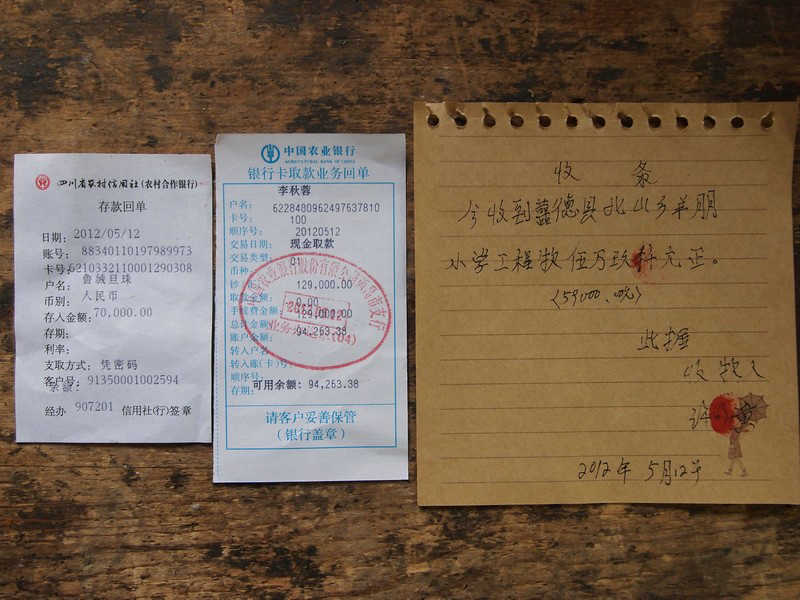 四川省农村信用社(农村合作银行)
存款回单
日期: 2012/05/12
账号: 88340110197989973
卡号: 6210332110001290308
户名: 鲁绒旦珠
币别: 人民币
存入金额: 70,000.00
存期:
利率:
支取方式: 凭密码
客户号: 91350001002594
经办 907201 信用社(行)签章
中国农业银行
AGRICULTURAL BANK OF CHINA
银行卡取款业务回单
李秋蓉
户名: 6228480962497637810
卡号: 100
顺序号: 20120512
交易日期: 现金取款
交易类型: 01
币种:
129,000.00
0.00
手续费金额: 129,000.00
94,263.38
账户金额:
转入户名:
转入账(卡)号:
顺序号:
存期:
可用余额: 94,263.38
请客户妥善保管
(银行盖章)
收 条
今收到 德县北山乡羊朋
小学工程款伍万玖仟元正。
(59000.00元)
此据
收款人
2012年 5月12号